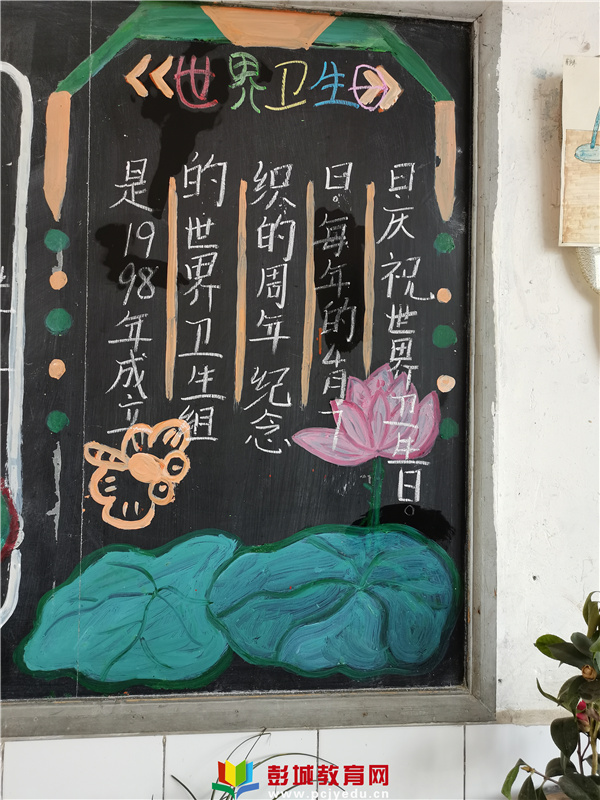 《世界卫生日》
是1998年成立
的世界卫生组
织的周年纪念
日。每年的4月7
日,庆祝世界卫生日。
彭城教育网
www.pcjyedu.cn